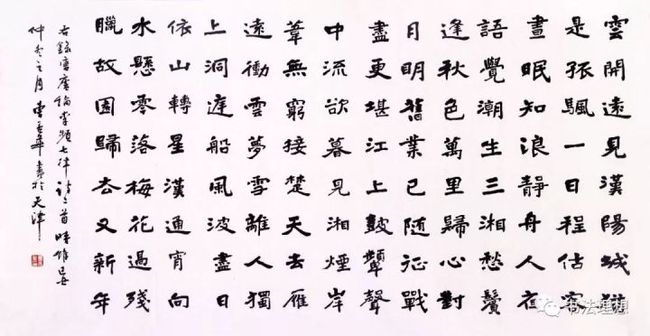 雲開遠見漢陽城猶
是孤颿一日程估客
晝眠知浪靜舟人夜
語覺潮生三湘愁鬢
逢秋色萬里歸心對
月明舊業已隨征戰
盡更堪江上鼓鼙聲
中流欲暮見湘煙岸
葦無窮接楚天去雁
遠衝雲夢雪離人獨
上洞庭船風波盡日
依山轉星漢通宵向
水懸零落梅花過殘
臘故園歸去又新年
右錄唐盧綸李頻七律詩二首時維己丑
仲冬之月華書於天津
书法理想